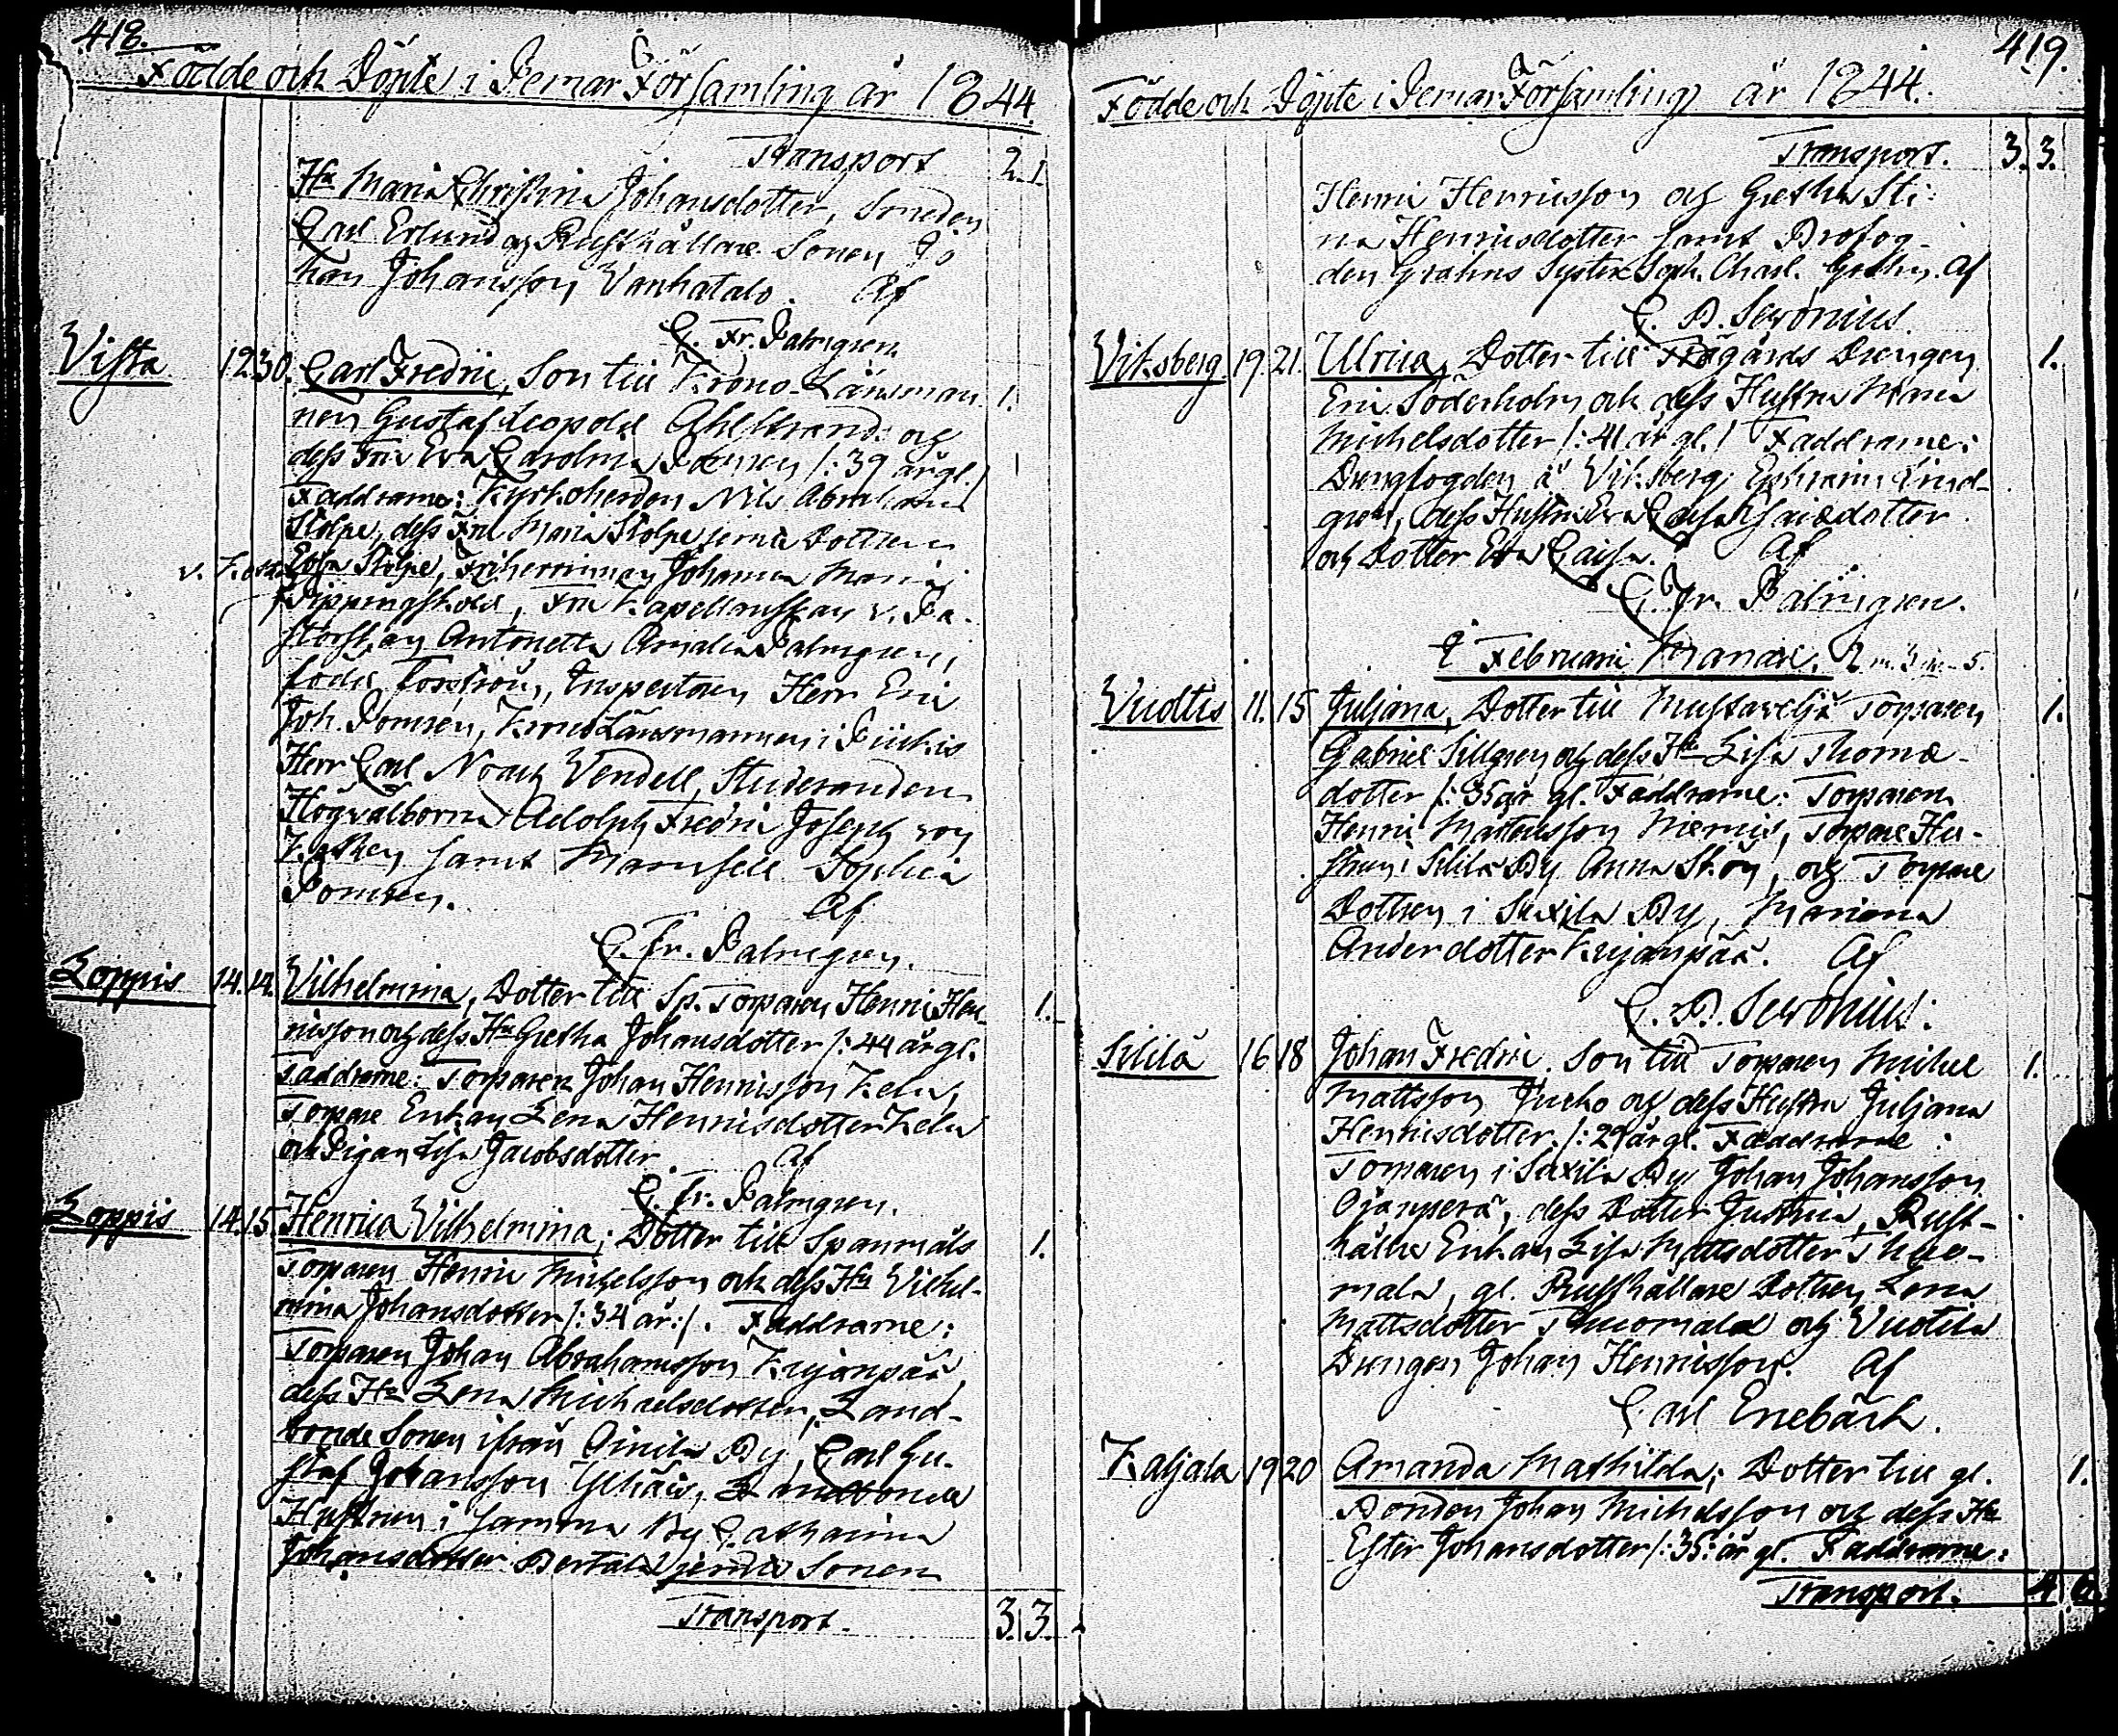 418.
Födde och Döpte i Pemar Församling år 1844.
Transport 2. 1.
Hu Maria Christina Johansdotter, Smeden
Carl Erlund og Rusthållare Sonen Jo
han Johansson Vanhatalo. Af
C. Fr. Palmgren
Vista 12 30. Carl Fredric, Son till Krono-Länsman 1.
nen Gustaf Leopold Ahlstrand og
dess Fru Eva Carolina Pomren /: 39 år gl.
Faddrarne: Kyrkoherden Nils Abraham
Stolpe, dess Fru Maria Stolpe jemte Dottren
Stolpe, Friherrinnan Johanna Maria
Fru Kapellanskan v. Pa-
storskan Antonetta Amalia Palmgren,
född Forström, Inspectoren Herr Eric
Joh. Pomren, Krono Länsmannen i Piikkis
Herr Carl Noach Vendell, Studeranden
Högvälborne Adolph Fredric Joseph von
Kothen samt Mamsell Sophia
Pomren. Af
C. Fr. Palmgren.
Loppis 14. 14. Vilhelmina, Dotter till Sp. Torparen Henric Hen- 1.
ricsson och dess Hu Gretha Johansdotter /: 44 år gl.
Faddrarne: Torparen Johan Henricsson Kela,
Torpare Enkan Lena Henricsdotter Kela
och Pigan Lisa Jacobsdotter. Af
C. Fr. Palmgren.
Loppis 14. 15. Henrica Vilhelmina, Dotter till Spanmåls 1.
Torparen Henric Michelsson och dess Hu Vilhel-
mina Johansdotter /: 34 år :/. Faddrarne:
Torparen Johan Abrahamsson Kujanpää,
dess Hu Lena Michaelsdotter, Land-
bonde Sonen ifrån Oinila By, Carl Gu-
staf Johansson Landbonde
Hustrun i samma By Catharina
Johansdotter Bertala jemte Sonen
Transport. 3. 3.
419.
Födde och Döpte i Pemar Församling år 1844.
Transport. 3. 3.
Henric Henricsson og Gretha Sti-
na Henricsdotter samt Brofog-
den Grahns Syster Soph. Charl. Grahn. Af
C. B. Seronius.
Viksberg 19. 21. Ulrica, Dotter till Trägårds Drengen 1.
Eric Söderholm och dess Hustru Maria
Michelsdotter /: 41 år gl. / Faddrarne:
Drengfogden å Viksberg Ephraim Lind-
gren, dess Hustru Eva Caisa Isaicdotter
och Dotter Eva Caisa. Af
C. Fr. Palmgren.
i Februarii Månad.
Vuoltis 11. 15 Juliana, Dotter till Mustaveljä Torparen 1.
Gabriel Sillgren och dess Hu Lisa Thomæ-
dotter /: 35 år gl. Faddrarne: Torparen
Henric Mattsson Torpare Hu-
strun i Silila By Anna Ståhl, och Torpare
Dottren i Suxila By, Mariana
Andersdotter Kujanpää. Af
C. B. Seronius.
Sililä 16 18 Johan Fredric. Son till Torparen Michel 1.
Mattsson Jucko och dess Hustru Juliana
Henricsdotter. /: 29 år gl. Faddrarne:
Torparen i Suxila By Johan Johansson
Ojanperä, dess Dotter Justina, Rust-
hållar Enkan Lisa Mattsdotter Thuo-
mala, gl. Rusthållare Dottren Lena
Mattsdotter Thuomala och Vuotila
Drengen Johan Henricsson. Af
Carl Enebäck.
Kaljala 19 20 Amanda Mathilda; Dotter till gl. 1.
Bonden Johan Michelsson och dess Hu
Ester Johansdotter /: 35: år gl. Faddrarne:
Transport. 4. 6.